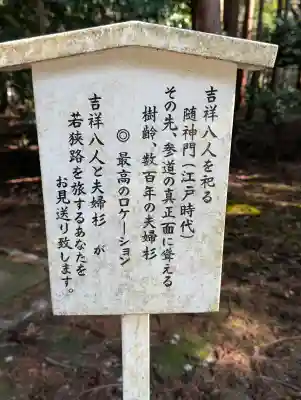 吉祥八人を祀る
随神門(江戸時代)
その先、参道の真正面に聳える
樹齢、数百年の夫婦杉
◎ 最高のロケーション
吉祥八人と夫婦杉 が
若狭路を旅するあなたを
お見送り致します。